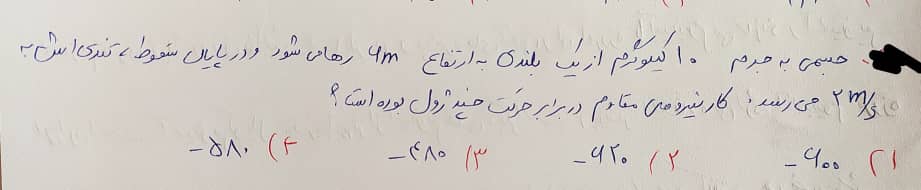 جسمی به جرم ۱۰ کیلوگرم از یک بلندی به ارتفاع ۶m رها می شود و در پایان سقوط، تندی اش به
۲ m/s می رسد. کار نیروهای مقاوم در برابر حرکت چند ژول بوده است؟
۱) -۶۰۰ ۲) -۶۲۰ ۳) -۴۸۰ ۴) -۵۸۰